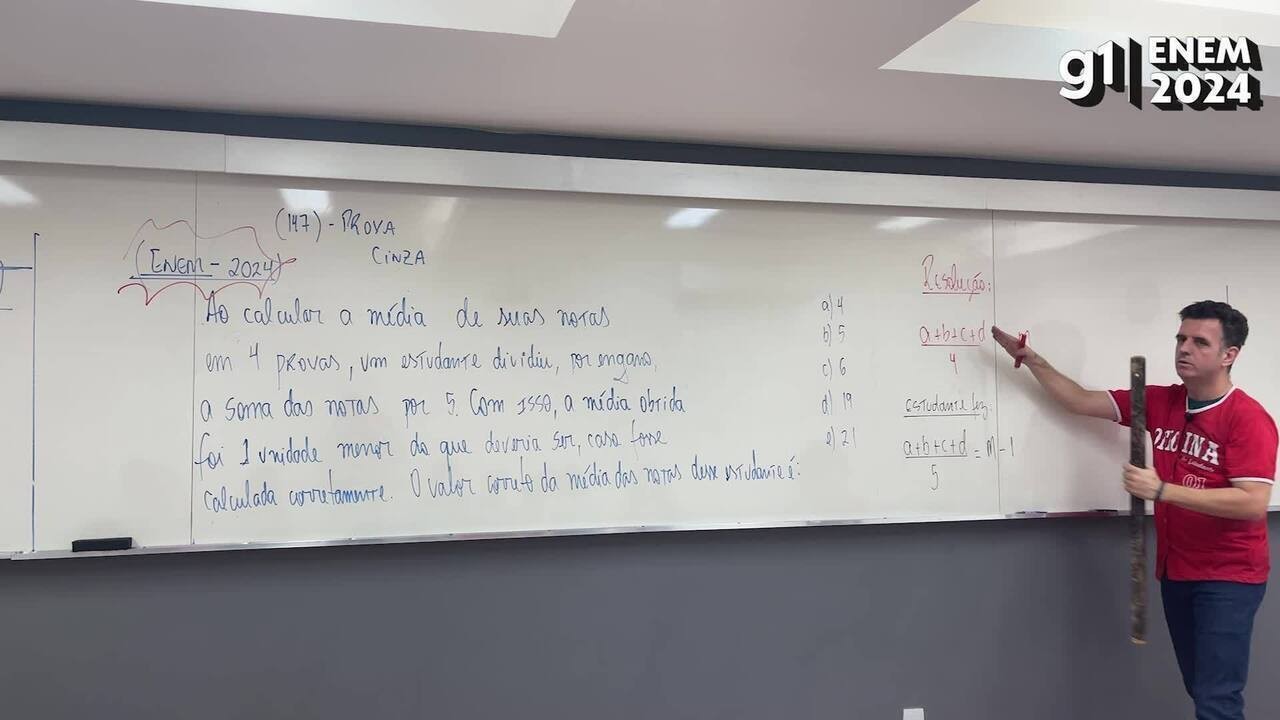 g1 ENEM 2024
(147) - PROVA
CINZA
(ENEM - 2024)
Ao calcular a média de suas notas
em 4 provas, um estudante dividiu, por engano,
a soma das notas por 5. Com isso, a média obtida
foi 1 unidade menor do que deveria ser, caso fosse
calculada corretamente. O valor correto da média das notas desse estudante é:
a) 4
b) 5
c) 6
d) 19
e) 21
Resolução:
a+b+c+d
4
estudante fez:
a+b+c+d = m - 1
5
OFICINA
do Estudante
01